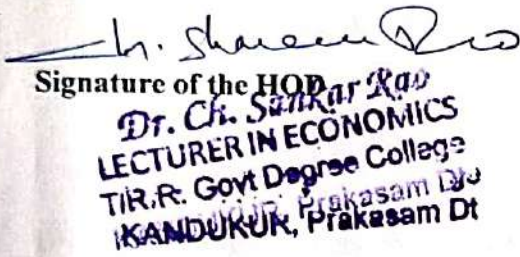 Ch. Sankar Rao
Signature of the HOD
Dr. Ch. Sankar Rao
LECTURER IN ECONOMICS
T.R.R. Govt Degree College
KANDUKUR, Prakasam Dt